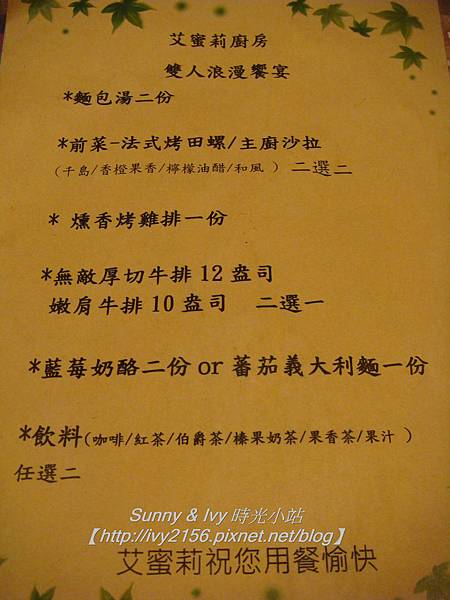 艾蜜莉廚房
雙人浪漫饗宴
*麵包湯二份
*前菜-法式烤田螺/主廚沙拉
(千島/香橙果香/檸檬油醋/和風 ) 二選二
* 燻香烤雞排一份
*無敵厚切牛排12盎司
嫩肩牛排10盎司 二選一
*藍莓奶酪二份 or 蕃茄義大利麵一份
*飲料(咖啡/紅茶/伯爵茶/榛果奶茶/果香茶/果汁 )
任選二
Sunny & Ivy 時光小站
【http://ivy2156.pixnet.net/blog】
艾蜜莉祝您用餐愉快